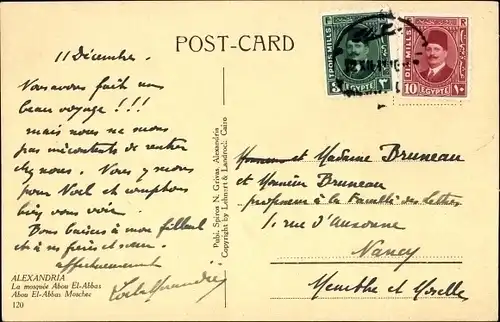 POST-CARD
11 Décembre.
Nous avons fait un
beau voyage !!!
mais nous ne sommes
pas mécontents de rentrer
chez nous. Nous y sommes
pour Noël et comptons
bien vous voir.
Bons baisers à mon filleul
et à ses frères et sœur.
affectueusement
ALEXANDRIA
La mosquée Abou El-Abbas
Abou El-Abbas Moschee
120
Publ. Spiros N. Grivas, Alexandria
Copyright by Lehnert & Landrock, Cairo
TROIS MILLS
3 EGYPTE ٣
DIX MILLS
10 EGYPTE ١٠
et Madame Bruneau
et Monsieur Bruneau
professeur à la Faculté des lettres
1. rue d'Ausonne
Nancy
Meurthe et Moselle